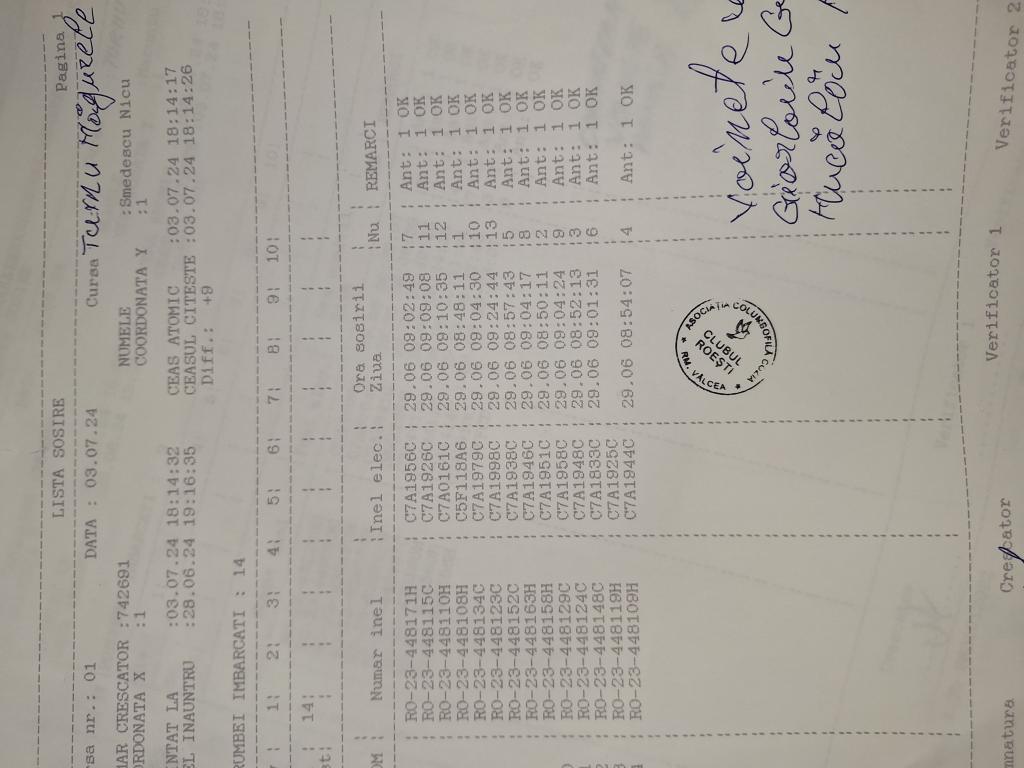 LISTA SOSIRE Pagina 1
rsa nr.: 01 DATA : 03.07.24 Cursa Turnu Măgurele
MAR CRESCATOR :742691 NUMELE :Smedescu Nicu
ORDONATA X :1 COORDONATA Y :1
NTAT LA :03.07.24 18:14:32 CEAS ATOMIC :03.07.24 18:14:17
EL INAUNTRU :28.06.24 19:16:35 CEASUL CITESTE :03.07.24 18:14:26
Diff.: +9
RUMBEI IMBARCATI : 14
1¦ 2¦ 3¦ 4¦ 5¦ 6¦ 7¦ 8¦ 9¦ 10¦
st¦ 14¦ ¦ ¦ ¦ ¦ ¦ ¦ ¦ ¦ ¦
Ora sosirii
OM ¦ Numar inel ¦Inel elec.¦ Ziua ¦Nu ¦ REMARCI
¦ RO-23-448171H ¦ C7A1956C ¦ 29.06 09:02:49 ¦ 7 ¦ Ant: 1 OK
¦ RO-23-448115C ¦ C7A1926C ¦ 29.06 09:09:08 ¦11 ¦ Ant: 1 OK
¦ RO-23-448110H ¦ C7A0161C ¦ 29.06 09:10:35 ¦12 ¦ Ant: 1 OK
¦ RO-23-448108H ¦ C5F118A6 ¦ 29.06 08:48:11 ¦ 1 ¦ Ant: 1 OK
¦ RO-23-448134C ¦ C7A1979C ¦ 29.06 09:04:30 ¦10 ¦ Ant: 1 OK
¦ RO-23-448123C ¦ C7A1998C ¦ 29.06 09:24:44 ¦13 ¦ Ant: 1 OK
¦ RO-23-448152C ¦ C7A1938C ¦ 29.06 08:57:43 ¦ 5 ¦ Ant: 1 OK
¦ RO-23-448163H ¦ C7A1946C ¦ 29.06 09:04:17 ¦ 8 ¦ Ant: 1 OK
¦ RO-23-448158H ¦ C7A1951C ¦ 29.06 08:50:11 ¦ 2 ¦ Ant: 1 OK
¦ RO-23-448129C ¦ C7A1958C ¦ 29.06 09:04:24 ¦ 9 ¦ Ant: 1 OK
¦ RO-23-448124C ¦ C7A1948C ¦ 29.06 08:52:13 ¦ 3 ¦ Ant: 1 OK
¦ RO-23-448146C ¦ C7A1833C ¦ 29.06 09:01:31 ¦ 6 ¦ Ant: 1 OK
¦ RO-23-448119H ¦ C7A1925C ¦
¦ RO-23-448109H ¦ C7A1944C ¦ 29.06 08:54:07 ¦ 4 ¦ Ant: 1 OK
ASOCIAȚIA COLUMBOFILĂ COZIA
CLUBUL
ROEȘTI
RM. VÂLCEA
mnatura Crescator Verificator 1 Verificator 2